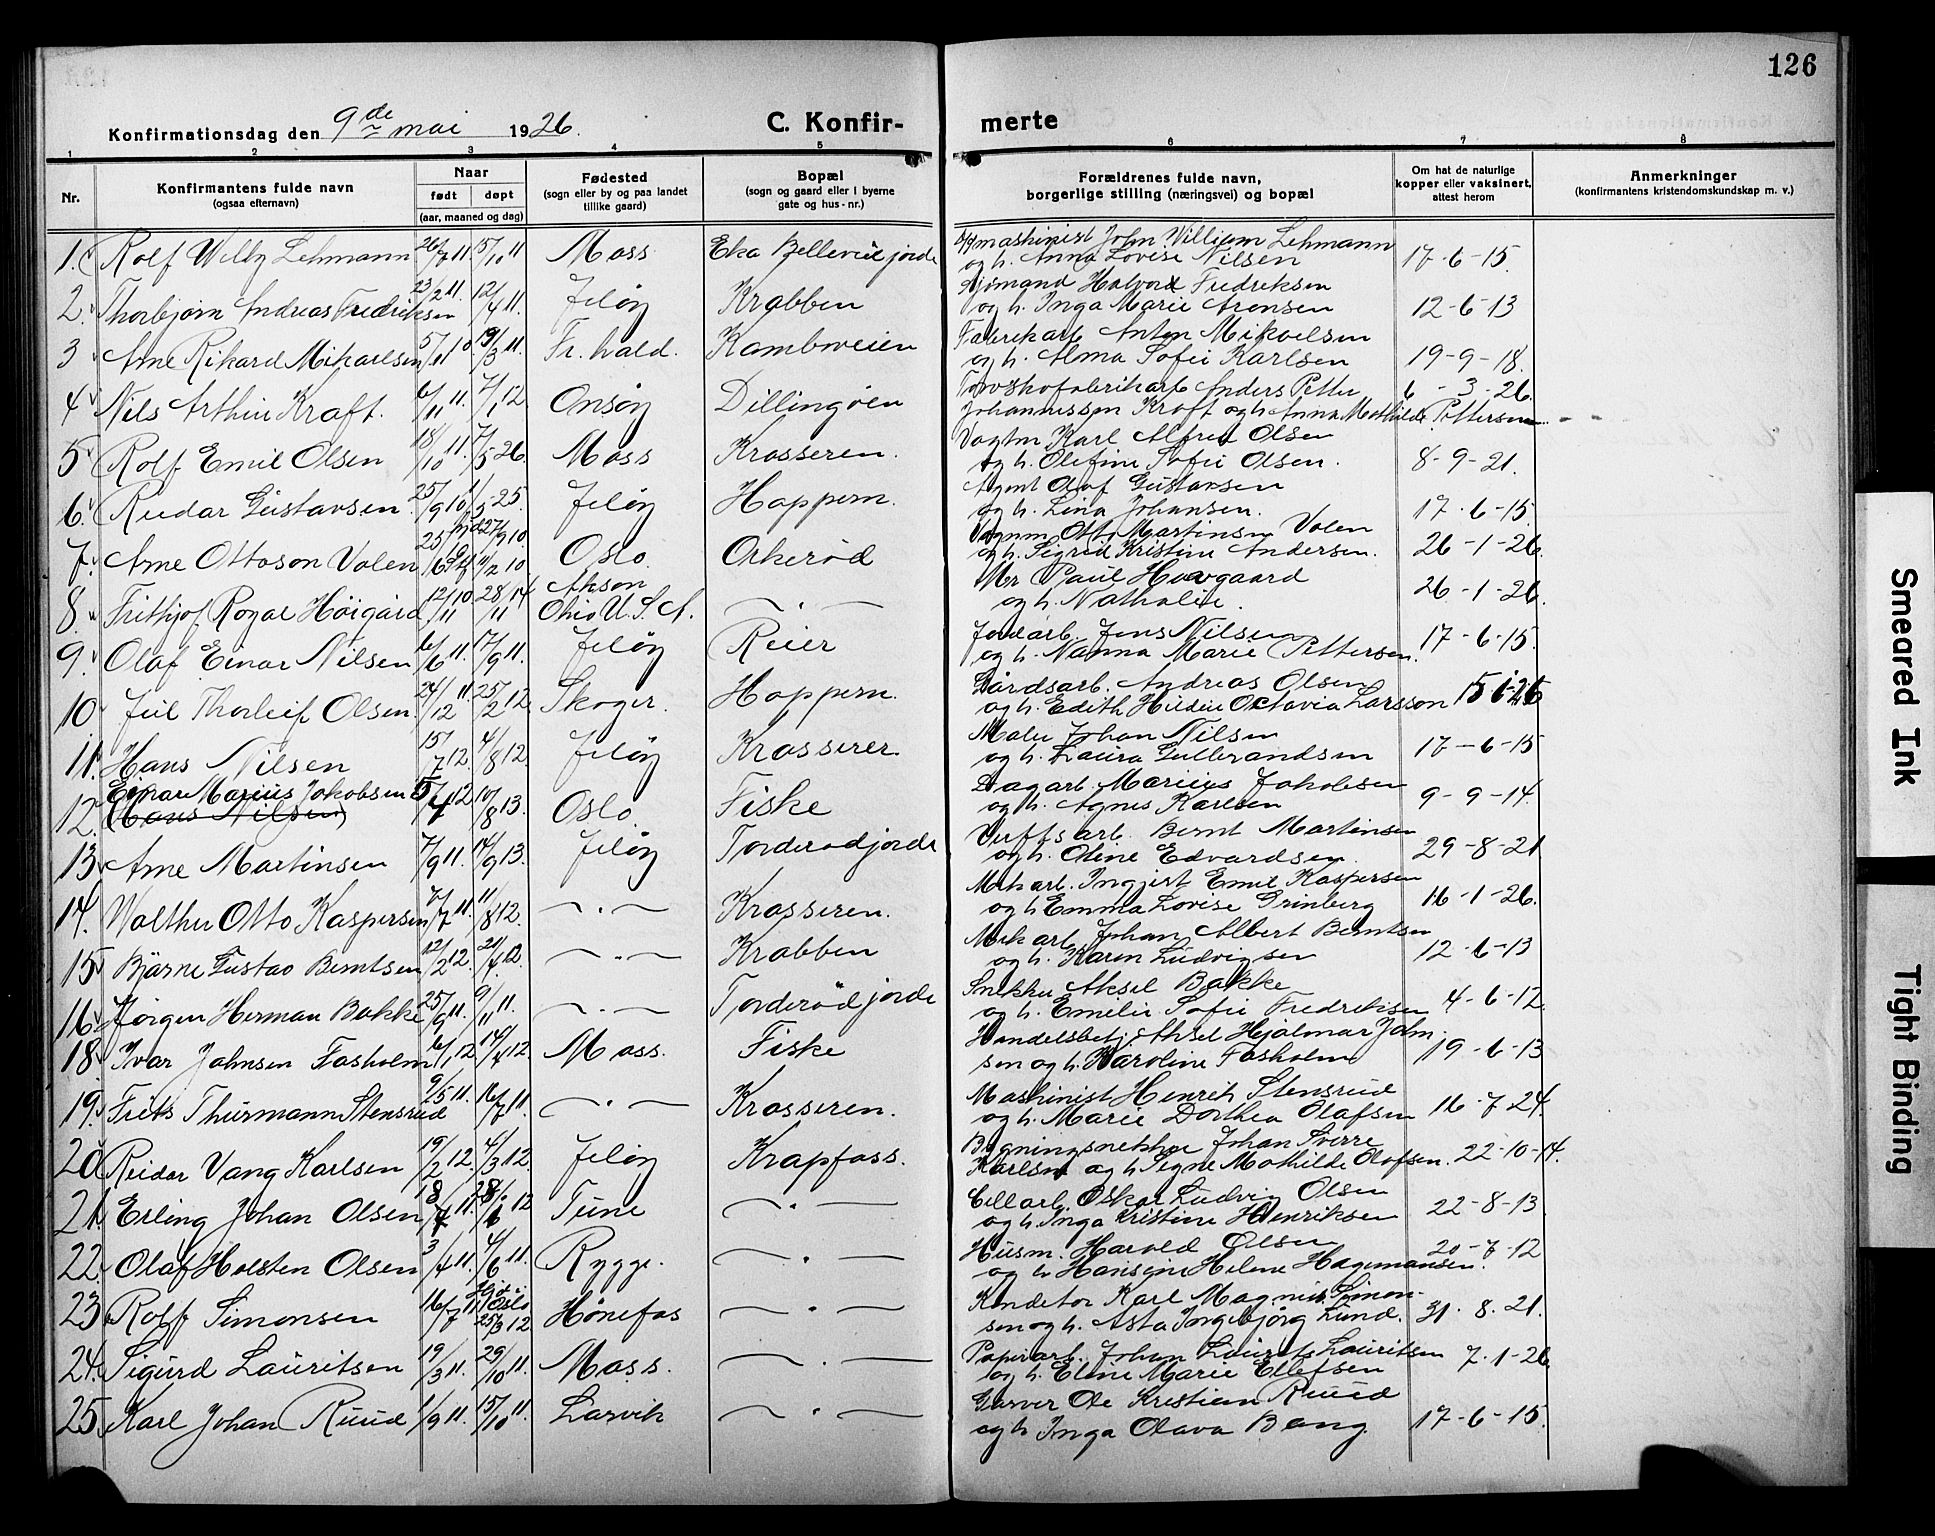 126
Konfirmationsdag den 9de mai 1926. C. Konfirmerte
1 2 3 4 5 6 7 8
Nr.
Konfirmantens fulde navn
(ogsaa efternavn)
Naar
født døpt
(aar, maaned og dag)
Fødested
(sogn eller by og paa landet
tillike gaard)
Bopæl
(sogn og gaard eller i byerne
gate og hus-nr.)
Forældrenes fulde navn,
borgerlige stilling (næringsvei) og bopæl
Om hat de naturlige
kopper eller vaksinert,
attest herom
Anmerkninger
(konfirmantens kristendomskundskap m. v.)
1. Rolf Wilby Lehmann 26/7 11. 15/10 11 Moss. Eka Bellevue jorde maskinist John William Lehmann
og h. Anna Lovise Nilsen 17-6-15.
2. Thorbjørn Andreas Fredriksen 23/2 11. 12/4 11. Jeløy Krabben Sjømand Halvord Fredriksen
og h. Inga Marie Arensen 12-6-13
3 Arne Rikard Mikaelsen 5/11 10. 19/3 11. Fr.hald. Kambweien Fabrikarb Anton Mikaelsen
og h. Alma Sofie Karlsen 19-9-18.
4 Nils Arthur Kraft. 6/11 11. 7/1 12 Onsøy Dillingøen Anders Petter 6-3-26.
Johannessen Kraft og h Anna Mathilde Pettersen
5 Rolf Emil Olsen 18/10 11. 7/5 26. Moss Krosseren. Vagtm Karl Alfred Olsen
og h. Olefine Sofie Olsen. 8-9-21.
6. Reidar Gustavsen 25/9 10. 1/5-25. Jeløy Hoppern. Agent Olaf Gustavsen
og h. Lina Johansen. 17-6-15.
7. Arne Ottoson Valen 25/6 10 Oslo. Orkerød Vognm Otto Martinsen Valen
og h. Sigrid Kristine Andersen. 26-1-26.
8. Frithjof Royal Höigård 12/11 10. 28/11 14 Akron
Ohio U.S.A. —"— Mr Paul Huvgaard
og h. Nathalie. 26-1-26.
9. Olaf Einar Nilsen 6/6 11. 17/9 11. Jeløy Reier Jordarb. Jens Nilsen
og h. Nanna Marie Pettersen. 17-6-15.
10 Thorleif Olsen. 24/12 11. 25/2 12 Skoger. Hoppern. Gårdsarb. Andreas Olsen
og h. Edith Octavia Larsson
11. Hans Nilsen 15/7 12. 4/8 12. Jeløy Krosserer. Maler Johan Nilsen
og h. Laura Gulbrandsen 17-6-15
12. Einar Marius Jakobsen 12 10/8 13. Oslo. Fiske Dagarb. Marius Jakobsen
(Hans Nilsen) og h. Agnes Karlsen 9-9-14.
13 Arne Martinsen 7/9 11. 14/9 13. Jeløy Torderødjorde Verftsarb. Bernt Martinsen
og h. Oline Edvardsen. 29-8-21
14. Walther Otto Kaspersen 7/7 11. 11/8 12. —"— Krosseren. Mek arb. Emil Kaspersen
og h Emma Lovise Grinberg 16-1-26.
15 Bjärne Gustav Berntsen 12/2 12. 21/4 12. —"— Krabben Mek arb. Johan Albert Berntsen
og h. Karen Ludvigsen 12-6-13
16. Jörgen Herman Bakke 25/9 11. 9/11 11. —"— Torderød jorde Snekker Aksel Bakke
og h. Emilie Sofie Fredriksen 4-6-12.
18 Ivar Johnsen Fosholm 6/1 12. 14/4 12. Moss. Fiske Handelsbetj. Aksel Hjalmar John-
sen og h. Karoline Fosholm 19-6-13
19. Frits Thurmann Stensrud 9/5 11. 16/7 11. —"— Krosseren. Maskinist Henrik Stensrud
og h. Marie Dorthea Olafsen 16-7-24.
20 Reidar Vang Karlsen 19/2 12. 4/3 12. Jeløy Krapfoss. Bygningsnekker Johan Sverre
Karlsen og h. Signe Mathilde Olafsen. 22-10-14.
21. Erling Johan Olsen 18/ 11. 28/ 12 Tune —"— Cellarb. Oskar Ludvig Olsen
og h. Inga Kristine Henriksen 22-8-13.
22. Olaf Holsten Olsen 3/4 11. 4/6 11. Rygge. —"— Husm. Harald Olsen
og h Hansine Helene Hagemansen. 20-7-12
23 Rolf Simonsen 16/7 11 Oslo 25/3 12 Hönefos —"— Kondktør Karl Magnus Simon-
sen og h. Asta Ingebjörg Lund. 31.8.21.
24. Sigurd Lauritsen 19/3 11. 29/10 11. Moss. —"— Papirarb. Johan Laurits Lauritsen
og h. Eline Marie Ellefsen 7-1-26
25 Karl Johan Ruud 1/9 11. 15/10 11. Larvik —"— Garver Ole Kristian Ruud
og h Inga Olava Bang. 17-6-15.
Smeared Ink
Tight Binding